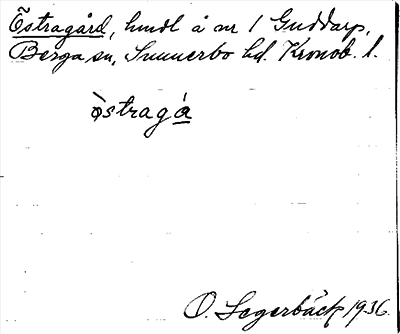 Östragård, hmdl å nr 1 Guddarp,
Berga sn, Sunnerbo hd. Kronob. l.
òstragá
O. Segerbäck 1936.